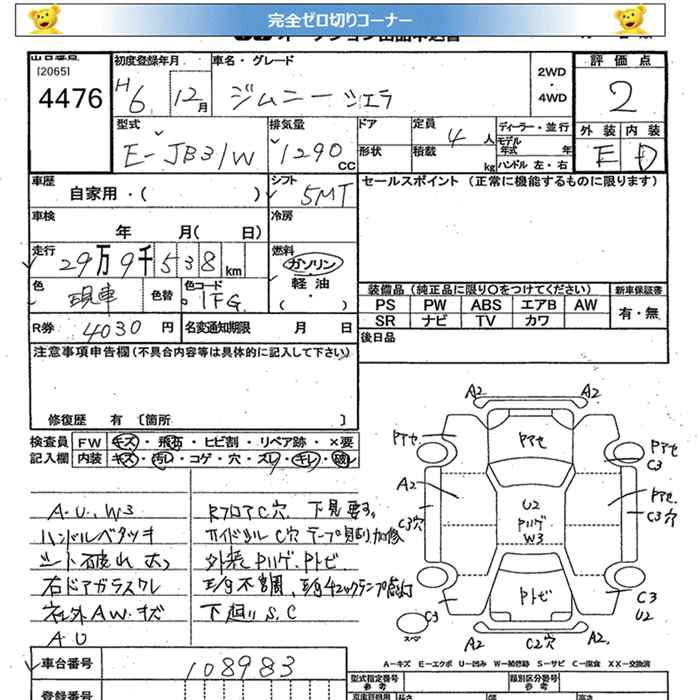 完全ゼロ切りコーナー
オークション出品申込書
出品番号
[2065]
4476
初度登録年月
H6 12月
車名・グレード
ジムニーシエラ
2WD
・
4WD
評価点
2
外装 内装
E D
型式
E-JB31W
排気量
1290 CC
ドア
形状
定員 4 人
積載 kg
ディーラー・並行
モデル年式 年
ハンドル 左・右
車歴
自家用・( )
シフト
5MT
セールスポイント (正常に機能するものに限ります)
車検
年 月( 日)
冷房
走行
29万9千538km
燃料
ガソリン
軽油
( ・ )
色
現車
色替
色コード
1FG
装備品(純正品に限り○をつけてください)
新車保証書
PS PW ABS エアB AW
SR ナビ TV カワ
有・無
R券 4030 円
名変通知期限 月 日
後日品
注意事項申告欄(不具合内容等は具体的に記入して下さい)
修復歴 有 〔箇所 〕
検査員記入欄
FW キズ・飛石・ヒビ割・リペア跡・×要
内装 キズ・汚レ・コゲ・穴・スレ・キレ・破レ
A.U.W3
ハンドルベタツキ
シート破れ 大
右ドアガラスワレ
社外AW.キズ
A U
RフロアC穴 下見要す。
サイドシルC穴 テープ貼り
外装Pハゲ.Pトビ
E/g不調、E/gチェックランプ点灯
下廻りS.C
A2 A2
Pアセ
Pアセ
Pアセ
C3
A2
C3穴
U2
Pハゲ
W3
Pアセ.
C3穴
Pトビ
C3
C3
U2
スペア
A2 C2穴 A2.
A-キズ E-エクボ U-凹み W-補修跡 S-サビ C-腐食 XX-交換済
車台番号
108983
登録番号
型式指定番号
参考
類別区分番号
参考
長さ 幅 高さ